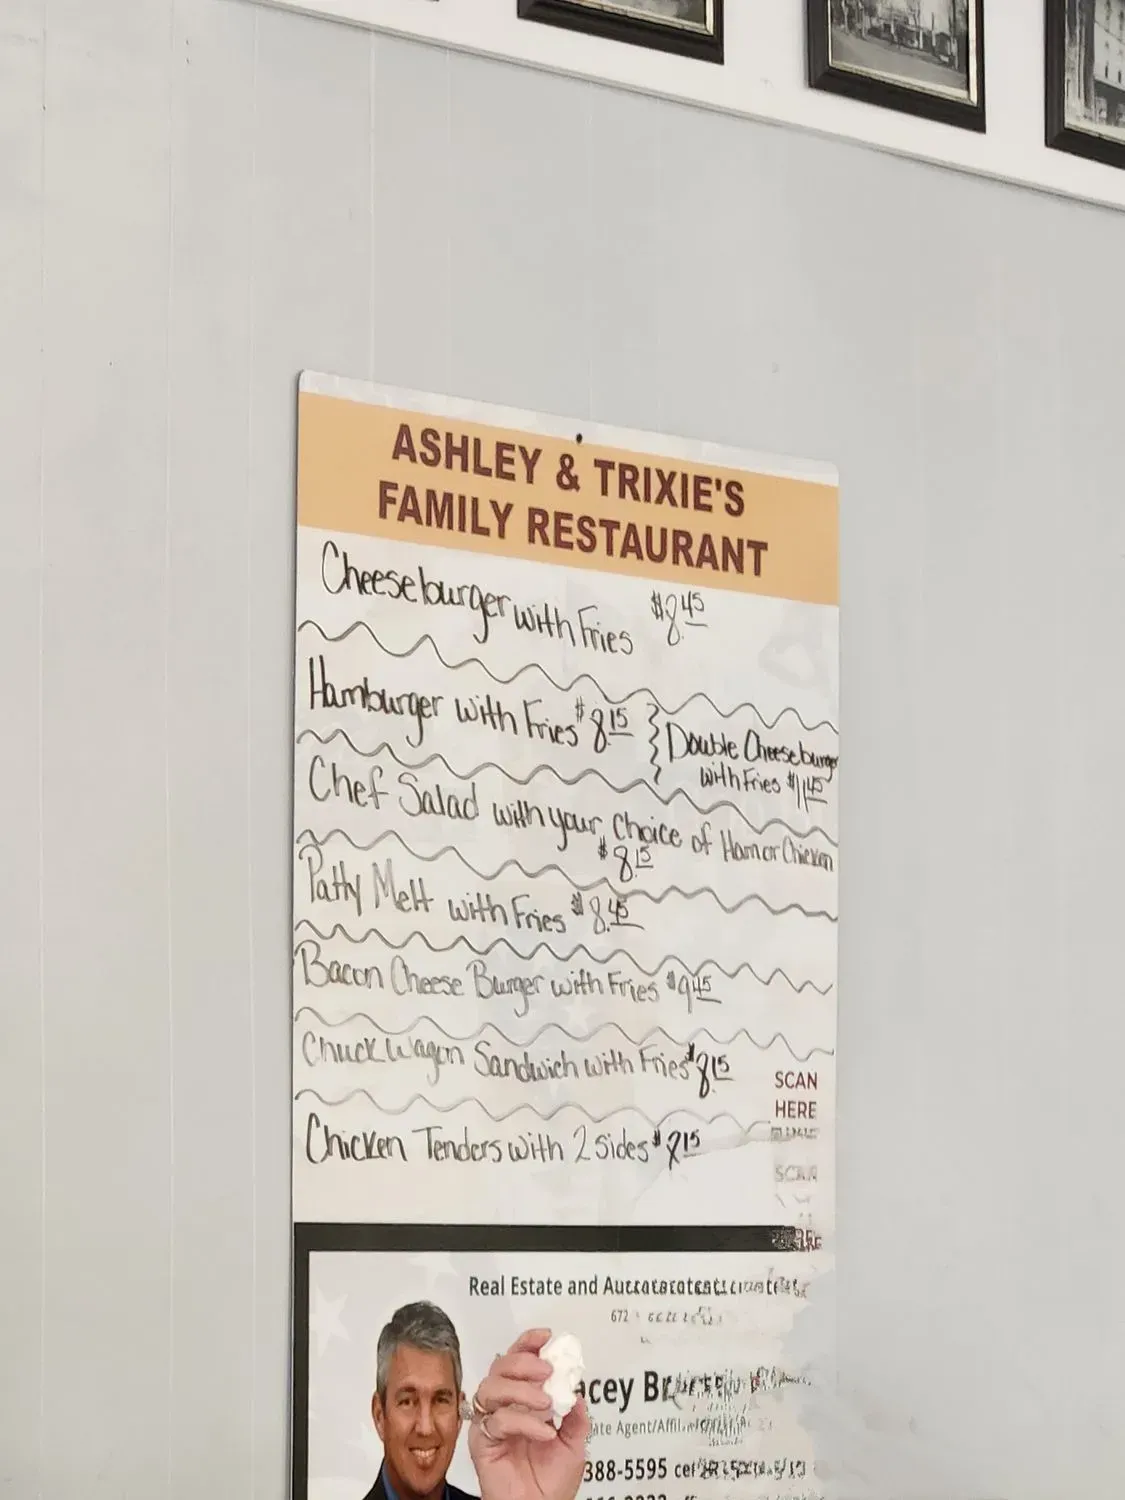 ASHLEY & TRIXIE'S
FAMILY RESTAURANT
Cheeseburger with Fries $8.45
Hamburger with Fries $8.15
Double Cheeseburger
with Fries $11.45
Chef Salad with your choice of Ham or Chicken
$8.15
Patty Melt with Fries $8.45
Bacon Cheese Burger with Fries $9.45
Chuckwagon Sandwich with Fries $8.15
Chicken Tenders with 2 sides $8.15
SCAN
HERE
Real Estate and
672
acey
ate Agent/
388-5595